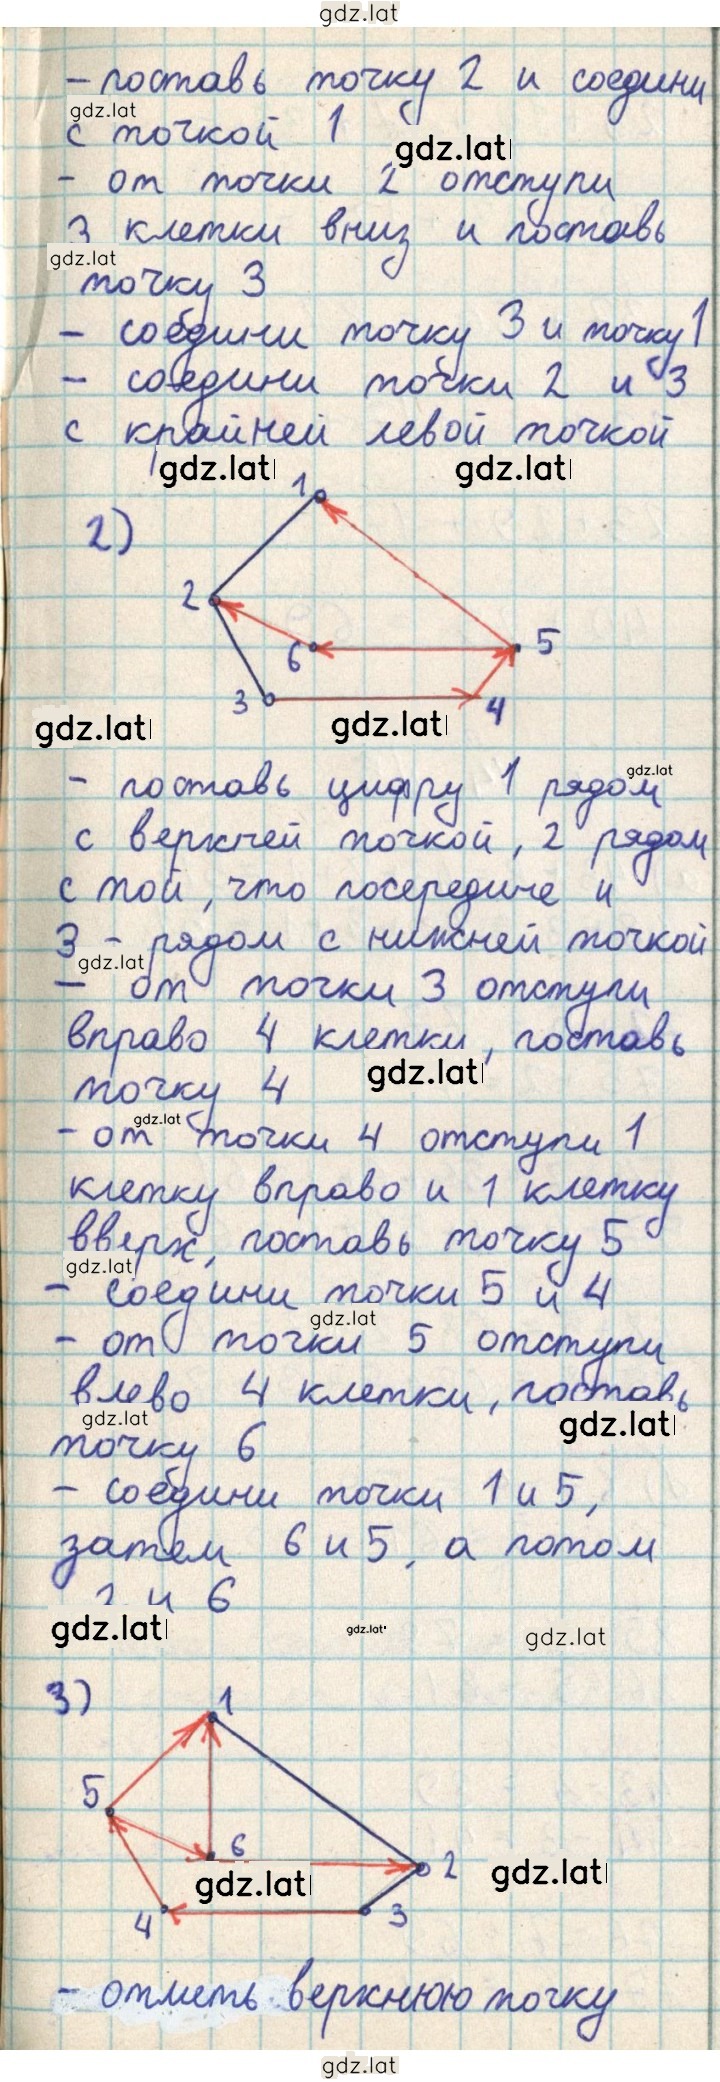 gdz.lat
- поставь точку 2 и соедини
gdz.lat
с точкой 1
gdz.lat
- от точки 2 отступи
3 клетки вниз и поставь
gdz.lat
точку 3
- соедини точку 3 и точку 1
- соедини точки 2 и 3
с крайней левой точкой
gdz.lat gdz.lat
1
2)
2
5
6
3
4
gdz.lat gdz.lat
- поставь цифру 1 рядом
gdz.lat
с верхней точкой, 2 рядом
с той, что посередине и
3 - рядом с нижней точкой
gdz.lat
- от точки 3 отступи
вправо 4 клетки, поставь
gdz.lat
точку 4
gdz.lat
- от точки 4 отступи 1
клетку вправо и 1 клетку
вверх, поставь точку 5
gdz.lat
- соедини точки 5 и 4
gdz.lat
- от точки 5 отступи
влево 4 клетки, поставь
gdz.lat gdz.lat
точку 6
- соедини точки 1 и 5,
затем 6 и 5, а потом
2 и 6
gdz.lat gdz.lat gdz.lat
3)
1
5
6
2
gdz.lat gdz.lat
4
3
- отметь верхнюю точку
gdz.lat